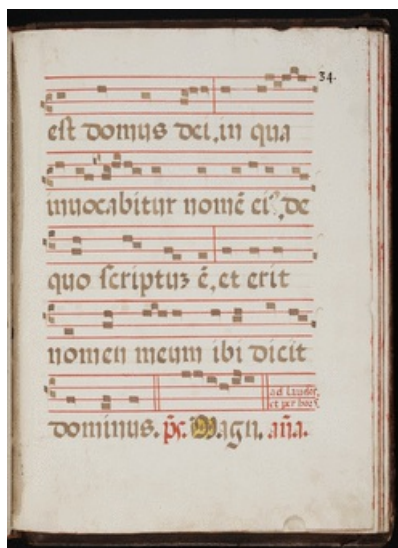 34.
est domus dei, in qua
inuocabitur nomē eiꝰ, de
quo scriptuꝫ ē, et erit
nomen meum ibi dicit
ad laudes,
et per horas,
dominus. ps. Magn. aña.